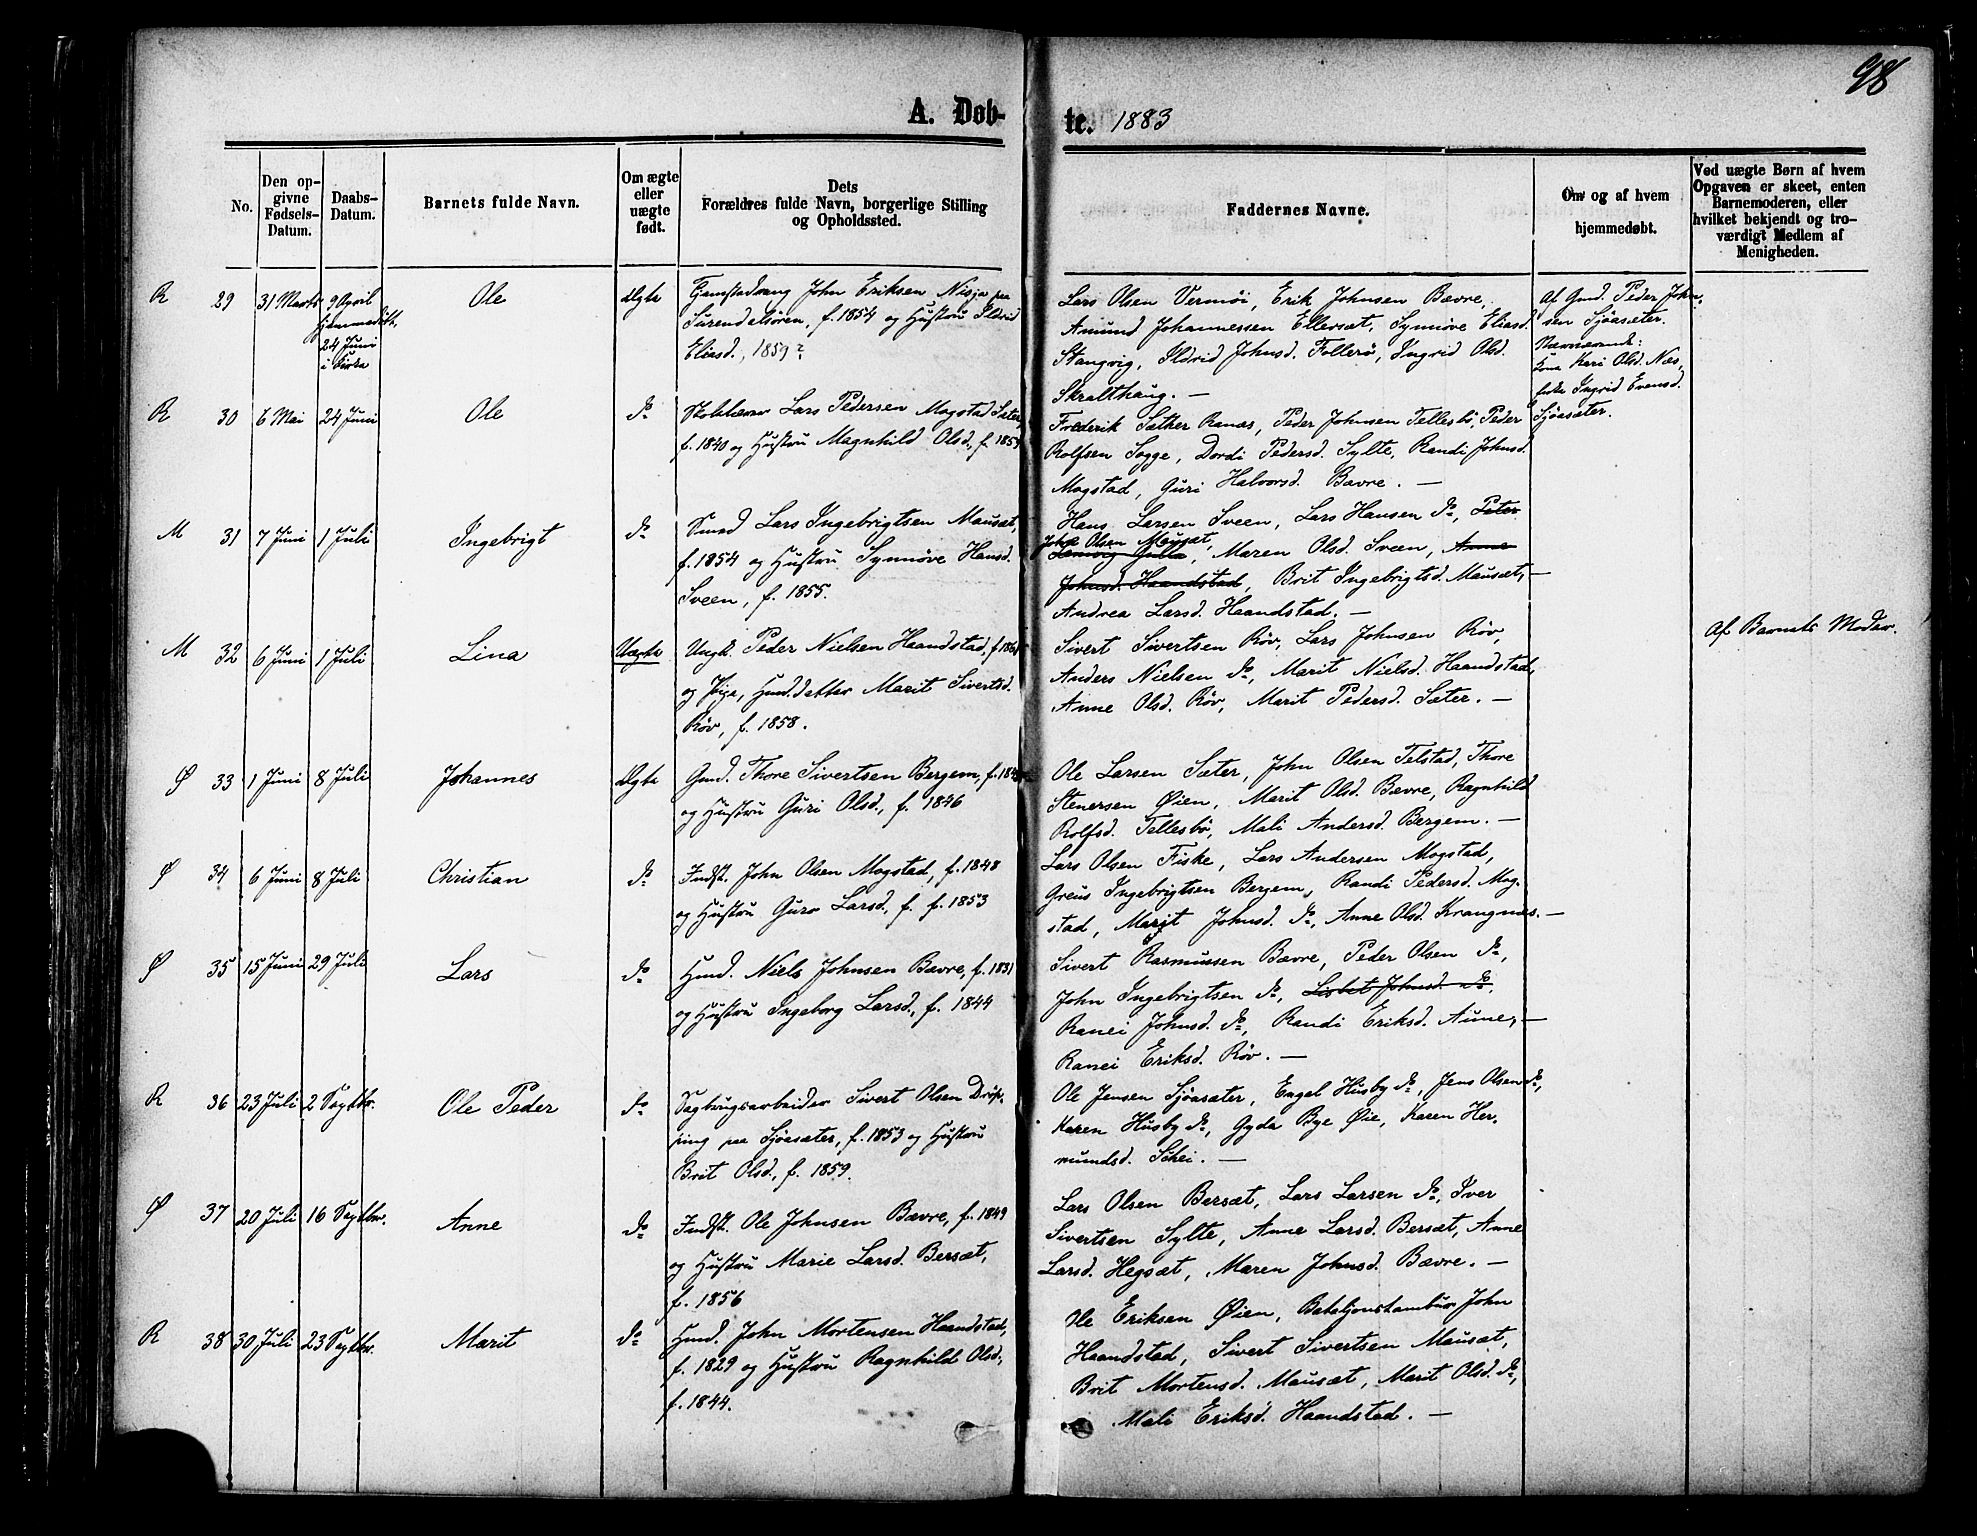 98
A. Døb-
te. 1883
No.
Den op-
givne
Fødsels-
Datum.
Daabs-
Datum.
Barnets fulde Navn.
Om ægte
eller
uægte
født.
Dets
Forældres fulde Navn, borgerlige Stilling
og Opholdssted.
Faddernes Navne.
Om og af hvem
hjemmedøbt.
Ved uægte Børn af hvem
Opgaven er skeet, enten
Barnemoderen, eller
hvilket bekjendt og tro-
værdigt Medlem af
Menigheden.
R 29 31 Marts 9 April
hjemmedøbt,
24 Juni
i Kirke
Ole
Ægte
John Eriksen Nisja paa
Surendalsøren, f. 1854 og Hustru Ildrid
Eliasd., 1859?
Lars Olsen Vermøi, Erik Johnsen Bævre,
Amund Johannessen Ellevsæt, Synnøve Eliasd.
Stangvig, Ildrid Johnsd. Follerø, Ingrid Olsd.
Skralthaug. —
Af Gmd. Peder John-
sen Sjøasæter.
Nærværende:
Kona Kari Olsd. Næs,
Ingrid Evensd.
Sjøasæter.
R 30 6 Mai 24 Juni Ole do
Lars Pedersen Mogstad Sæter,
f. 1840 og Hustru Magnhild Olsd., f. 1859
Frederik Sæther Ranæs, Peder Johnsen Tellesbø, Peder
Rolfsen Sogge, Dordi Pedersd. Sylte, Randi Johnsd.
Mogstad, Guri Halvorsd. Bævre. —
M 31 7 Juni 1 Juli Ingebrigt do
Smed Lars Ingebrigtsen Mausæt,
f. 1854 og Hustru Synnøve Hansd.
Sveen, f. 1855.
Hans Larsen Sveen, Lars Hansen do, Peter
John Olsen Mausæt,
Gulla, Maren Olsd. Sveen, Anne
Johnsd. Haandstad, Brit Ingebrigtsd. Mausæt, —
Andrea Larsd. Haandstad. —
M 32 6 Juni 1 Juli Lina Uægte
Ungk. Peder Nielsen Haandstad, f. 1861
og Pige, Husm.datter Marit Sivertsd.
Røv, f. 1858.
Sivert Sivertsen Røv, Lars Johnsen Røv,
Anders Nielsen do, Marit Nielsd. Haandstad,
Anne Olsd. Røv, Marit Pedersd. Sæter. —
Af Barnets Moder.
Ø 33 1 Juni 8 Juli Johannes Ægte
Gmd. Thore Sivertsen Bergem, f.
og Hustru Guri Olsd., f. 1846
Ole Larsen Sæter, John Olsen Telstad, Thore
Stenersen Øien, Marit Olsd. Bævre, Ragnhild
Rolfsd. Tellesbø, Mali Andersd. Bergem. —
Ø 34 6 Juni 8 Juli Christian do
Indst. John Olsen Mogstad, f. 1848
og Hustru Guro Larsd., f. f. 1853
Lars Olsen Fiske, Lars Andersen Mogstad,
Greus Ingebrigtsen Bergem, Randi Pedersd. Mog-
stad, Marit Johnsd. do, Anne Olsd. Krangnæs. —
Ø 35 15 Juni 29 Juli Lars do
Husmd. Niels Johnsen Bævre, f. 1831
og Hustru Ingeborg Larsd., f. 1844
Sivert Rasmussen Bævre, Peder Olsen do,
John Ingebrigtsen do, Lisbet Johnsd. do,
Ranei Johnsd. do, Randi Eriksd. Aune, —
Ranei Eriksd. Røv. —
R 36 23 Juli 2 Septbr. Ole Peder do
Sagbrugsarbeider Sivert Olsen Drøp-
ping paa Sjøasæter, f. 1853 og Hustru
Brit Olsd., f. 1859.
Ole Jensen Sjøasæter, Engel Husby do, Jens Olsen do,
Karen Husby do, Gyda Bye Øie, Karen Her-
mundsd. Schei. —
Ø 37 20 Juli 16 Septbr. Anne do
Indst. Ole Johnsen Bævre, f. 1849
og Hustru Marie Larsd. Bersæt,
f. 1856
Lars Olsen Bersæt, Lars Larsen do, Iver
Sivertsen Sylte, Anne Larsd. Bersæt, Anne
Larsd. Hegsæt, Maren Johnsd. Bævre. —
R 38 30 Juli 23 Septbr. Marit do
Husmd. John Mortensen Haandstad,
f. 1829 og Hustru Ragnhild Olsd.,
f. 1844.
Ole Eriksen Øien, Bataljonstambur John
Haandstad, Sivert Sivertsen Mausæt,
Brit Mortensd. Mausæt, Marit Olsd. do,
Mali Eriksd. Haandstad. —